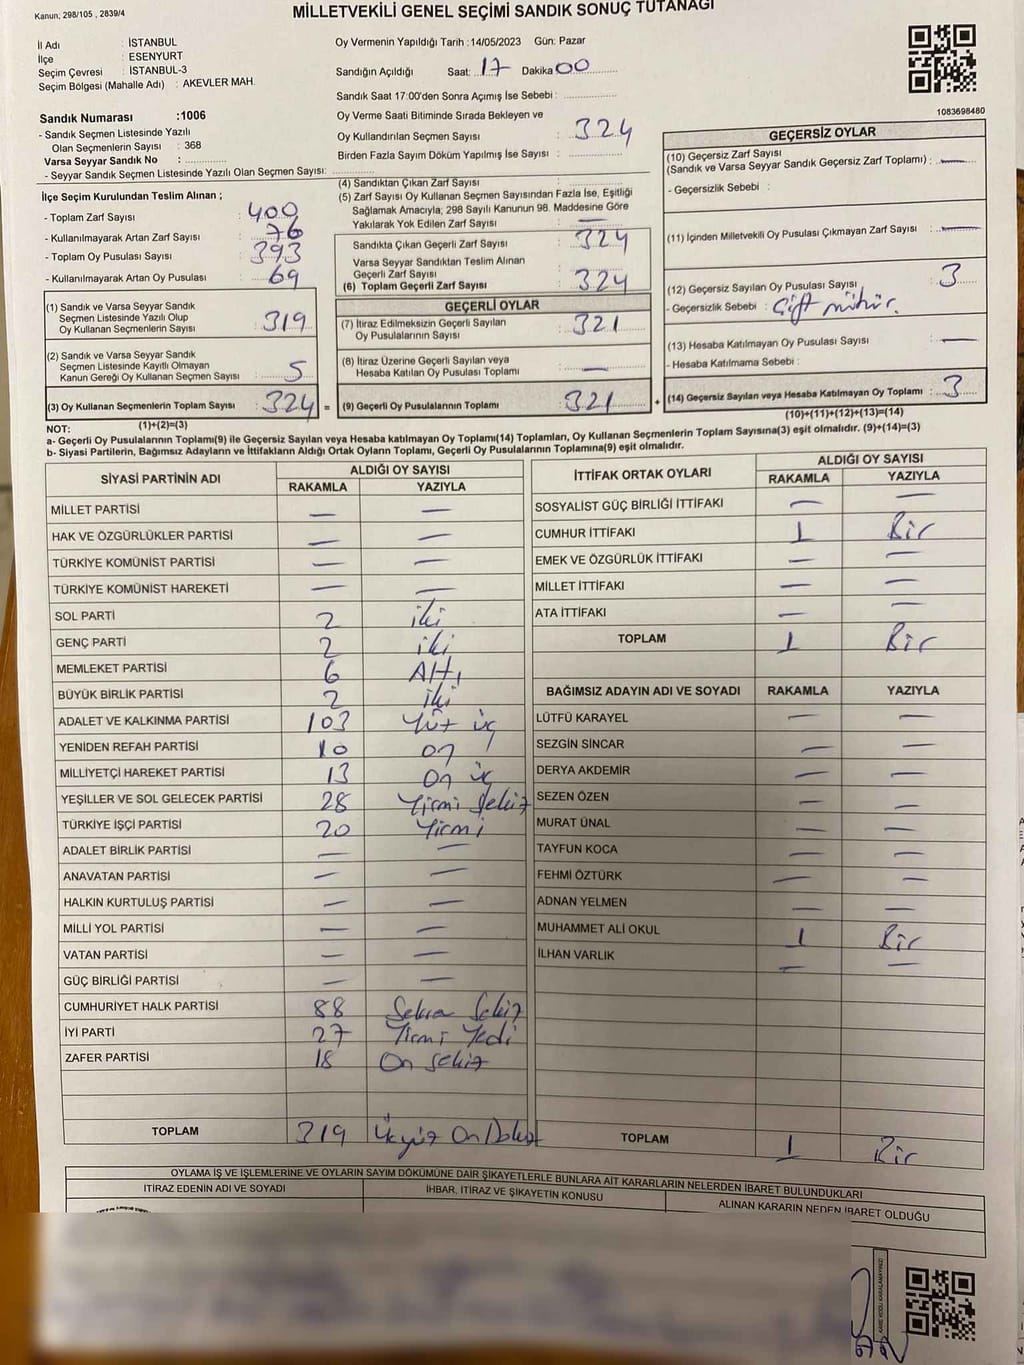 Kanun; 298/105 , 2839/4
MİLLETVEKİLİ GENEL SEÇİMİ SANDIK SONUÇ TUTANAĞI
İl Adı : İSTANBUL
İlçe : ESENYURT
Seçim Çevresi : İSTANBUL-3
Seçim Bölgesi (Mahalle Adı) : AKEVLER MAH.
Oy Vermenin Yapıldığı Tarih :14/05/2023 Gün: Pazar
Sandığın Açıldığı Saat: 17 Dakika 00
Sandık Saat 17:00'den Sonra Açımış İse Sebebi :
Sandık Numarası :1006
- Sandık Seçmen Listesinde Yazılı
Olan Seçmenlerin Sayısı : 368
Varsa Seyyar Sandık No :
- Seyyar Sandık Seçmen Listesinde Yazılı Olan Seçmen Sayısı:
Oy Verme Saati Bitiminde Sırada Bekleyen ve
Oy Kullandırılan Seçmen Sayısı : 324
Birden Fazla Sayım Döküm Yapılmış İse Sayısı :
1083698480
İlçe Seçim Kurulundan Teslim Alınan ;
- Toplam Zarf Sayısı : 400
- Kullanılmayarak Artan Zarf Sayısı : 76
- Toplam Oy Pusulası Sayısı : 393
- Kullanılmayarak Artan Oy Pusulası : 69
(1) Sandık ve Varsa Seyyar Sandık
Seçmen Listesinde Yazılı Olup
Oy Kullanan Seçmenlerin Sayısı : 319
(2) Sandık ve Varsa Seyyar Sandık
Seçmen Listesinde Kayıtlı Olmayan
Kanun Gereği Oy Kullanan Seçmen Sayısı : 5
(3) Oy Kullanan Seçmenlerin Toplam Sayısı : 324 =
(1)+(2)=(3)
(4) Sandıktan Çıkan Zarf Sayısı :
(5) Zarf Sayısı Oy Kullanan Seçmen Sayısından Fazla İse, Eşitliği
Sağlamak Amacıyla; 298 Sayılı Kanunun 98. Maddesine Göre
Yakılarak Yok Edilen Zarf Sayısı : —
Sandıkta Çıkan Geçerli Zarf Sayısı : 324
Varsa Seyyar Sandıktan Teslim Alınan
Geçerli Zarf Sayısı :
(6) Toplam Geçerli Zarf Sayısı : 324
GEÇERLİ OYLAR
(7) İtiraz Edilmeksizin Geçerli Sayılan
Oy Pusulalarının Sayısı : 321
(8) İtiraz Üzerine Geçerli Sayılan veya
Hesaba Katılan Oy Pusulası Toplamı : —
(9) Geçerli Oy Pusulalarının Toplamı : 321 +
GEÇERSİZ OYLAR
(10) Geçersiz Zarf Sayısı
(Sandık ve Varsa Seyyar Sandık Geçersiz Zarf Toplamı) : —
- Geçersizlik Sebebi :
(11) İçinden Milletvekili Oy Pusulası Çıkmayan Zarf Sayısı : —
(12) Geçersiz Sayılan Oy Pusulası Sayısı : 3
- Geçersizlik Sebebi : Çift mühür.
(13) Hesaba Katılmayan Oy Pusulası Sayısı : —
- Hesaba Katılmama Sebebi :
(14) Geçersiz Sayılan veya Hesaba Katılmayan Oy Toplamı : 3
(10)+(11)+(12)+(13)=(14)
NOT:
a- Geçerli Oy Pusulalarının Toplamı(9) ile Geçersiz Sayılan veya Hesaba katılmayan Oy Toplamı(14) Toplamları, Oy Kullanan Seçmenlerin Toplam Sayısına(3) eşit olmalıdır. (9)+(14)=(3)
b- Siyasi Partilerin, Bağımsız Adayların ve İttifakların Aldığı Ortak Oyların Toplamı, Geçerli Oy Pusulalarının Toplamına(9) eşit olmalıdır.
SİYASİ PARTİNİN ADI ALDIĞI OY SAYISI
RAKAMLA YAZIYLA
MİLLET PARTİSİ — —
HAK VE ÖZGÜRLÜKLER PARTİSİ — —
TÜRKİYE KOMÜNİST PARTİSİ — —
TÜRKİYE KOMÜNİST HAREKETİ — —
SOL PARTİ 2 iki
GENÇ PARTİ 2 iki
MEMLEKET PARTİSİ 6 Altı
BÜYÜK BİRLİK PARTİSİ 2 iki
ADALET VE KALKINMA PARTİSİ 103 Yüz üç
YENİDEN REFAH PARTİSİ 10 on
MİLLİYETÇİ HAREKET PARTİSİ 13 On üç
YEŞİLLER VE SOL GELECEK PARTİSİ 28 Yirmi Sekiz
TÜRKİYE İŞÇİ PARTİSİ 20 Yirmi
ADALET BİRLİK PARTİSİ — —
ANAVATAN PARTİSİ — —
HALKIN KURTULUŞ PARTİSİ — —
MİLLİ YOL PARTİSİ — —
VATAN PARTİSİ — —
GÜÇ BİRLİĞİ PARTİSİ — —
CUMHURİYET HALK PARTİSİ 88 Seksen Sekiz
İYİ PARTİ 27 Yirmi Yedi
ZAFER PARTİSİ 18 On Sekiz
TOPLAM 319 Üçyüz On Dokuz
İTTİFAK ORTAK OYLARI ALDIĞI OY SAYISI
RAKAMLA YAZIYLA
SOSYALİST GÜÇ BİRLİĞİ İTTİFAKI — —
CUMHUR İTTİFAKI 1 Bir
EMEK VE ÖZGÜRLÜK İTTİFAKI — —
MİLLET İTTİFAKI — —
ATA İTTİFAKI — —
TOPLAM 1 Bir
BAĞIMSIZ ADAYIN ADI VE SOYADI RAKAMLA YAZIYLA
LÜTFÜ KARAYEL — —
SEZGİN SİNCAR — —
DERYA AKDEMİR — —
SEZEN ÖZEN — —
MURAT ÜNAL — —
TAYFUN KOCA — —
FEHMİ ÖZTÜRK — —
ADNAN YELMEN — —
MUHAMMET ALİ OKUL 1 Bir
İLHAN VARLIK — —
TOPLAM 1 Bir
OYLAMA İŞ VE İŞLEMLERİNE VE OYLARIN SAYIM DÖKÜMÜNE DAİR ŞİKAYETLERLE BUNLARA AİT KARARLARIN NELERDEN İBARET BULUNDUKLARI
İTİRAZ EDENİN ADI VE SOYADI İHBAR, İTİRAZ VE ŞİKAYETİN KONUSU ALINAN KARARIN NEDEN İBARET OLDUĞU